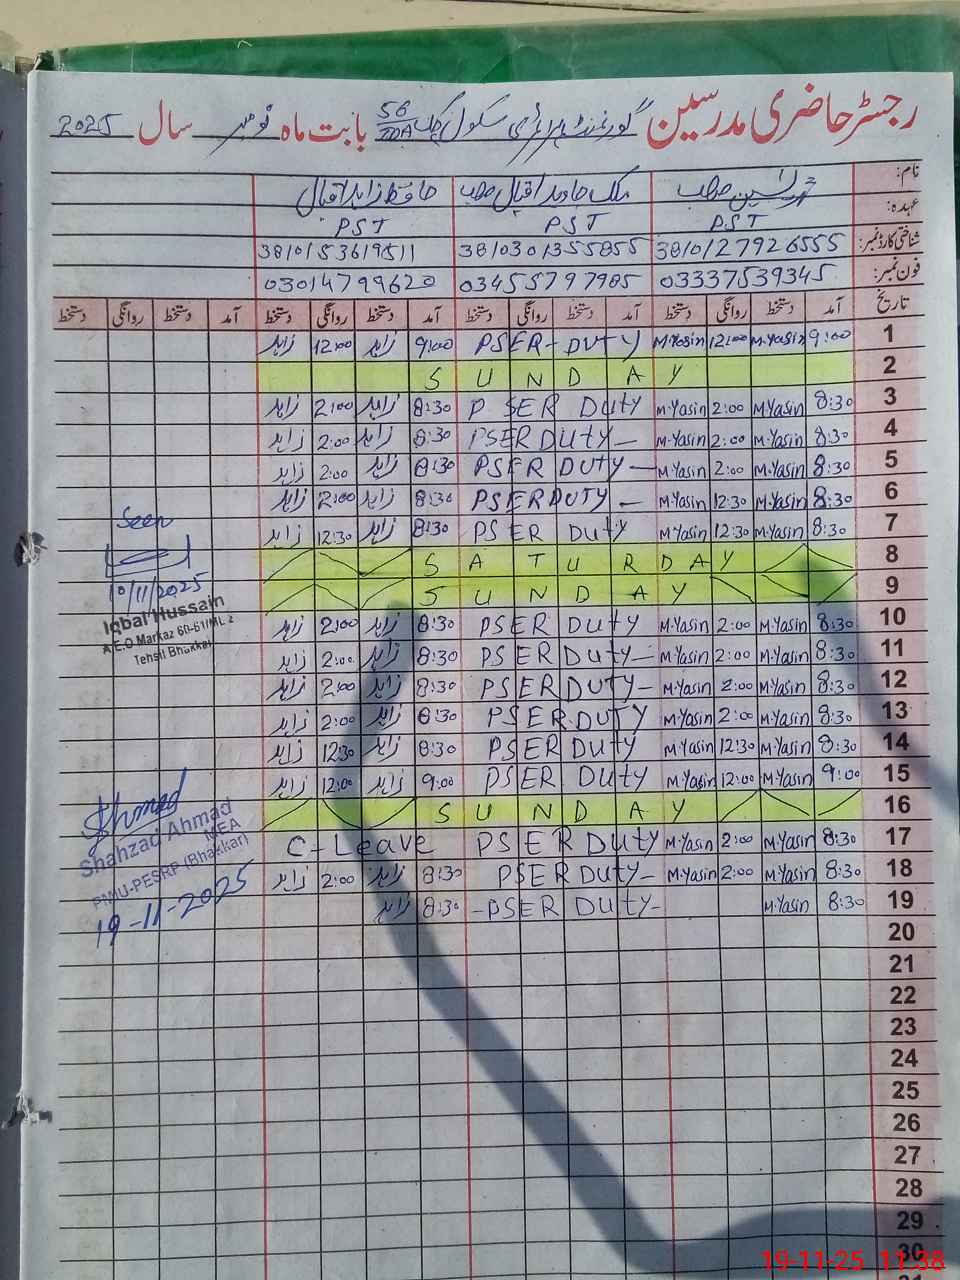 رجسٹر حاضری مدرسین گورنمنٹ پرائمری سکول چک 56/TDA بابت ماہ نومبر سال 2025
نام: محمد یٰسین صاحب ملک جاوید اقبال صاحب حافظ زاہد اقبال
عہدہ: PST PST PST
شناختی کارڈ نمبر: 3810127926555 3810301355855 3810153619511
فون نمبر: 03337539345 03455797985 03014799620
تاریخ آمد دستخط روانگی دستخط آمد دستخط روانگی دستخط آمد دستخط روانگی دستخط آمد دستخط روانگی دستخط
1 9:00 M.Yasin 12:00 M.Yasin PSER-DUTY 9:00 زاہد 12:00 زاہد
2 SUNDAY
3 8:30 M.Yasin 2:00 M.Yasin PSER DUTY 8:30 زاہد 2:00 زاہد
4 8:30 M.Yasin 2:00 M.Yasin PSER DUTY- 8:30 زاہد 2:00 زاہد
5 8:30 M.Yasin 2:00 M.Yasin PSER DUTY- 8:30 زاہد 2:00 زاہد
6 8:30 M.Yasin 12:30 M.Yasin PSER DUTY- 8:30 زاہد 2:00 زاہد
7 8:30 M.Yasin 12:30 M.Yasin PSER DUTY 8:30 زاہد 12:30 زاہد
8 SATURDAY
9 SUNDAY
10 8:30 M.Yasin 2:00 M.Yasin PSER DUTY 8:30 زاہد 2:00 زاہد
11 8:30 M.Yasin 2:00 M.Yasin PSER DUTY- 8:30 زاہد 2:00 زاہد
12 8:30 M.Yasin 2:00 M.Yasin PSER DUTY- 8:30 زاہد 2:00 زاہد
13 8:30 M.Yasin 2:00 M.Yasin PSER DUTY 8:30 زاہد 2:00 زاہد
14 8:30 M.Yasin 12:30 M.Yasin PSER DUTY 8:30 زاہد 12:30 زاہد
15 9:00 M.Yasin 12:00 M.Yasin PSER DUTY 9:00 زاہد 12:00 زاہد
16 SUNDAY
17 8:30 M.Yasin 2:00 M.Yasin PSER DUTY C-Leave
18 8:30 M.Yasin 2:00 M.Yasin PSER DUTY- 8:30 زاہد 2:00 زاہد
19 8:30 M.Yasin -PSER DUTY- 8:30 زاہد
20
21
22
23
24
25
26
27
28
29
30
31
Seen
10/11/2025
Iqbal Hussain
A.E.O Markaz 60-61/ML 2
Tehsil Bhakkar
Ahmad
Shahzad Ahmad
MEA
PMIU-PESRP (Bhakkar)
19-11-2025
19-11-25 11:38